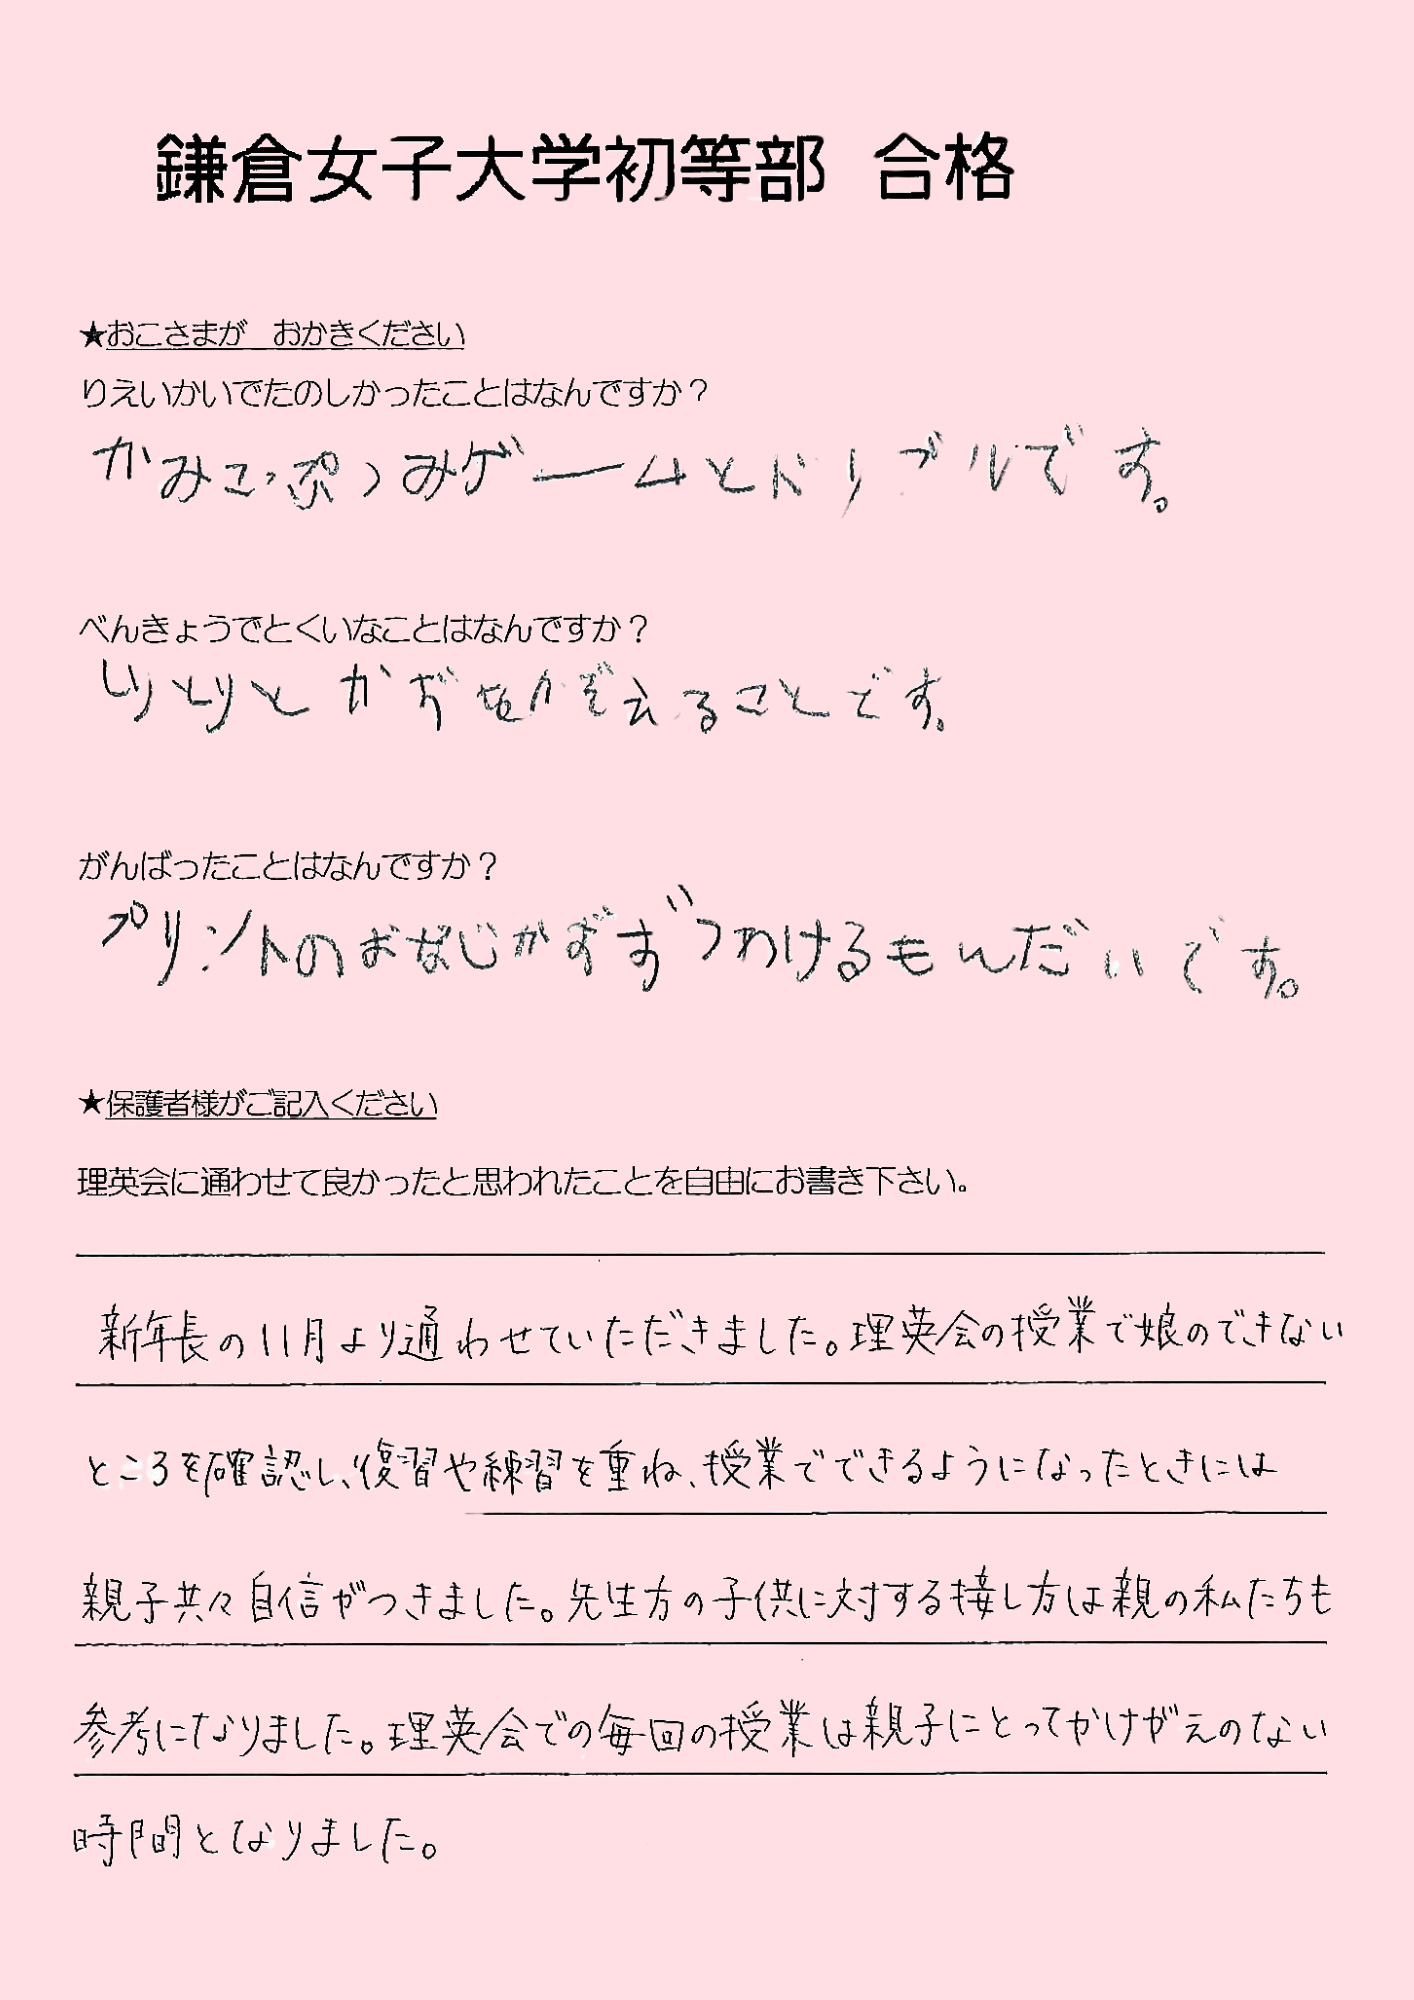 鎌倉女子大学初等部 合格
★おこさまが おかきください
りえいかいでたのしかったことはなんですか？
かみこっぷつみゲームとドリブルです。
べんきょうでとくいなことはなんですか？
しりとりとかずをかぞえることです。
がんばったことはなんですか？
プリントのおなじかずずつわけるもんだいです。
★保護者様がご記入ください
理英会に通わせて良かったと思われたことを自由にお書き下さい。
新年長の11月より通わせていただきました。理英会の授業で娘のできない
ところを確認し、復習や練習を重ね、授業でできるようになったときには
親子共々自信がつきました。先生方の子供に対する接し方は親の私たちも
参考になりました。理英会での毎回の授業は親子にとってかけがえのない
時間となりました。